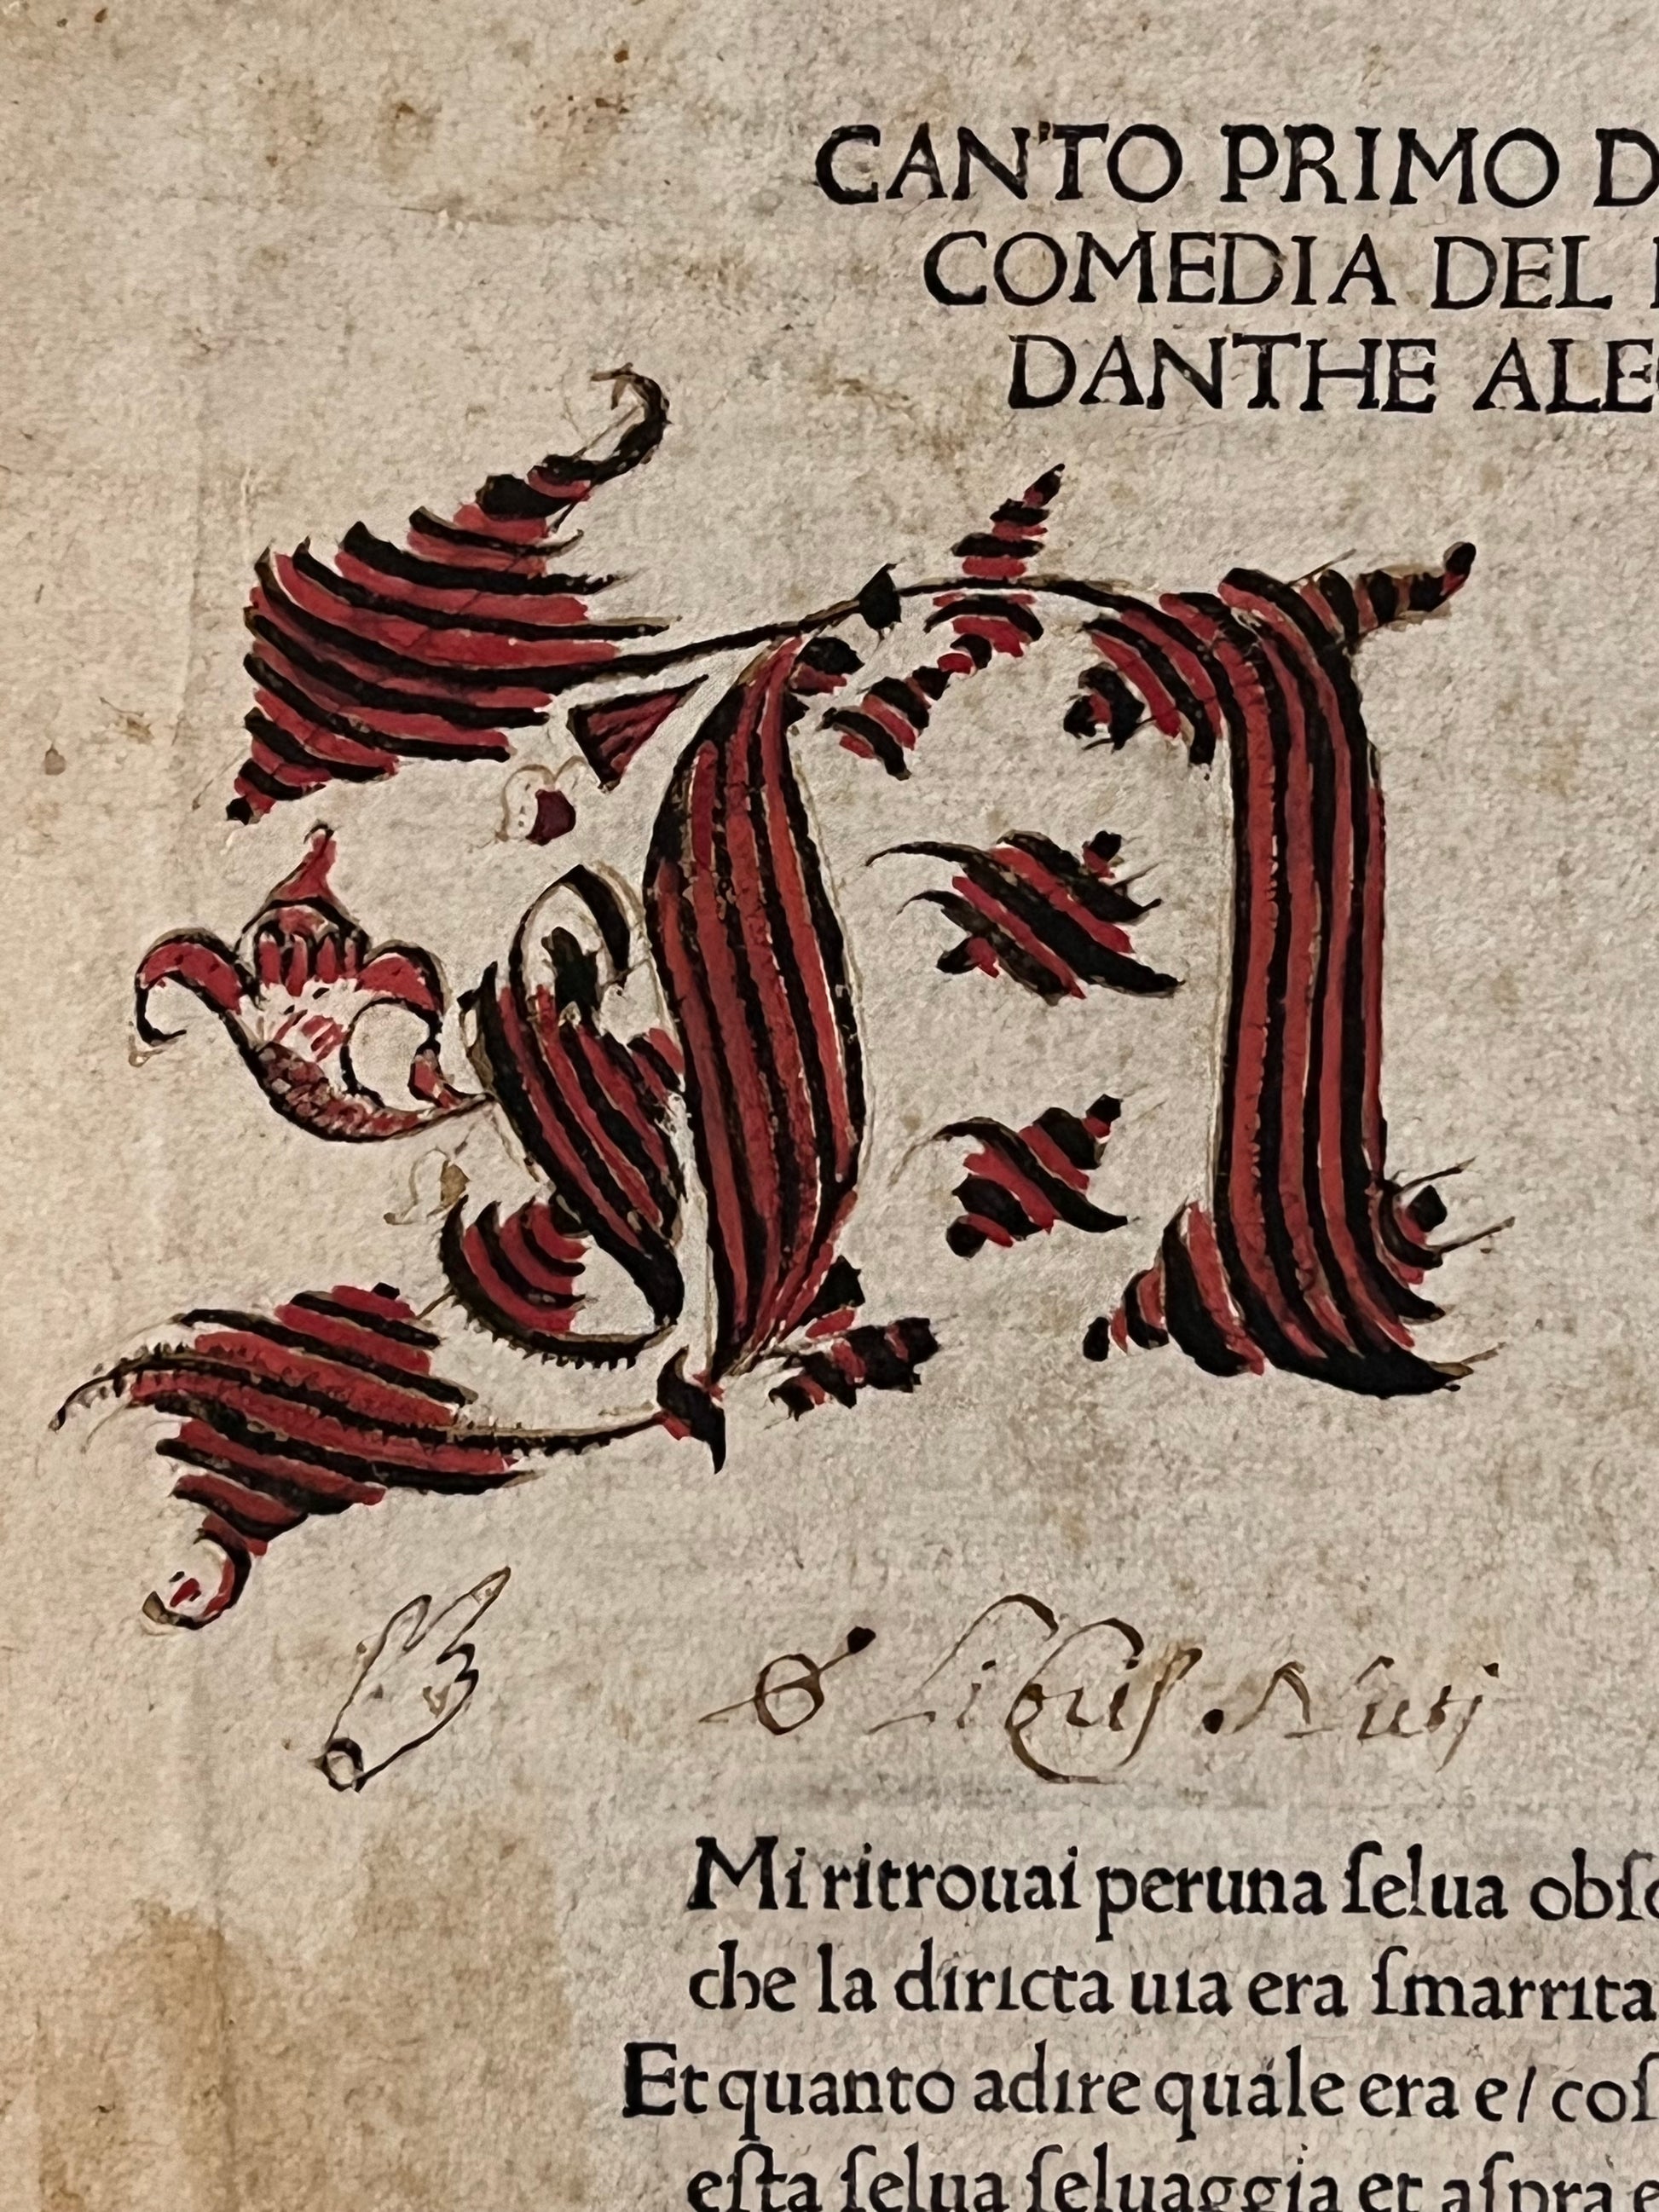 CANTO PRIMO D
COMEDIA DEL
DANTHE ALE
N
Mi ritrouai peruna ſelua obſc
che la diricta uia era ſmarrita
Et quanto adire quále era e/ coſ
eſta ſelua ſeluaggia et aſpra e